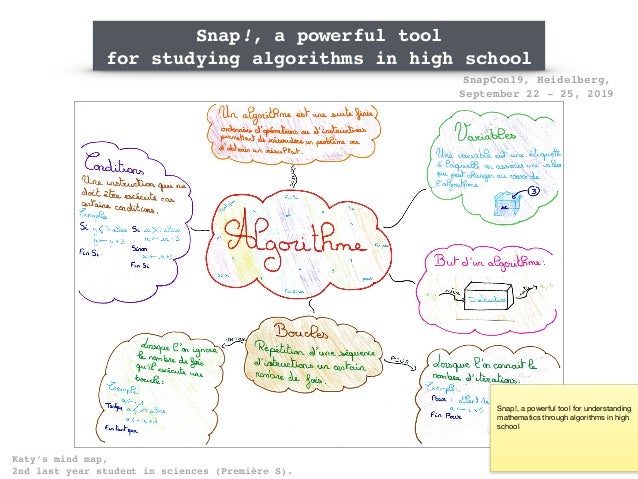 Snap!, a powerful tool
for studying algorithms in high school
SnapCon19, Heidelberg,
September 22 - 25, 2019
Un algorithme est une suite finie
ordonnées d'opérations ou d'instructions
permettant de résoudre un problème ou
d'obtenir un résultat.
Conditions
Une instruction qui ne
doit être exécuté
certaine conditions.
Exemple
Si
alors
Si
alors
Sinon
Fin Si
Fin Si
Variables
Une variable est une étiquette
à laquelle on associe une valeur
qui peut changer au cours de
l'algorithme.
3
Algorithme
But d'un algorithme:
Boucles
Répétition d'une séquence
d'instructions un certain
nombre de fois.
Lorsque l'on ignore
le nombre de fois
qu'il exécute une
boucle:
Exemple:
Fin tant que
POUR
Lorsque l'on connait le
nombre d'itérations:
Exemple:
Pour
Fin Pour
Snap!, a powerful tool for understanding
mathematics through algorithms in high
school
Katy's mind map,
2nd last year student in sciences (Première S).